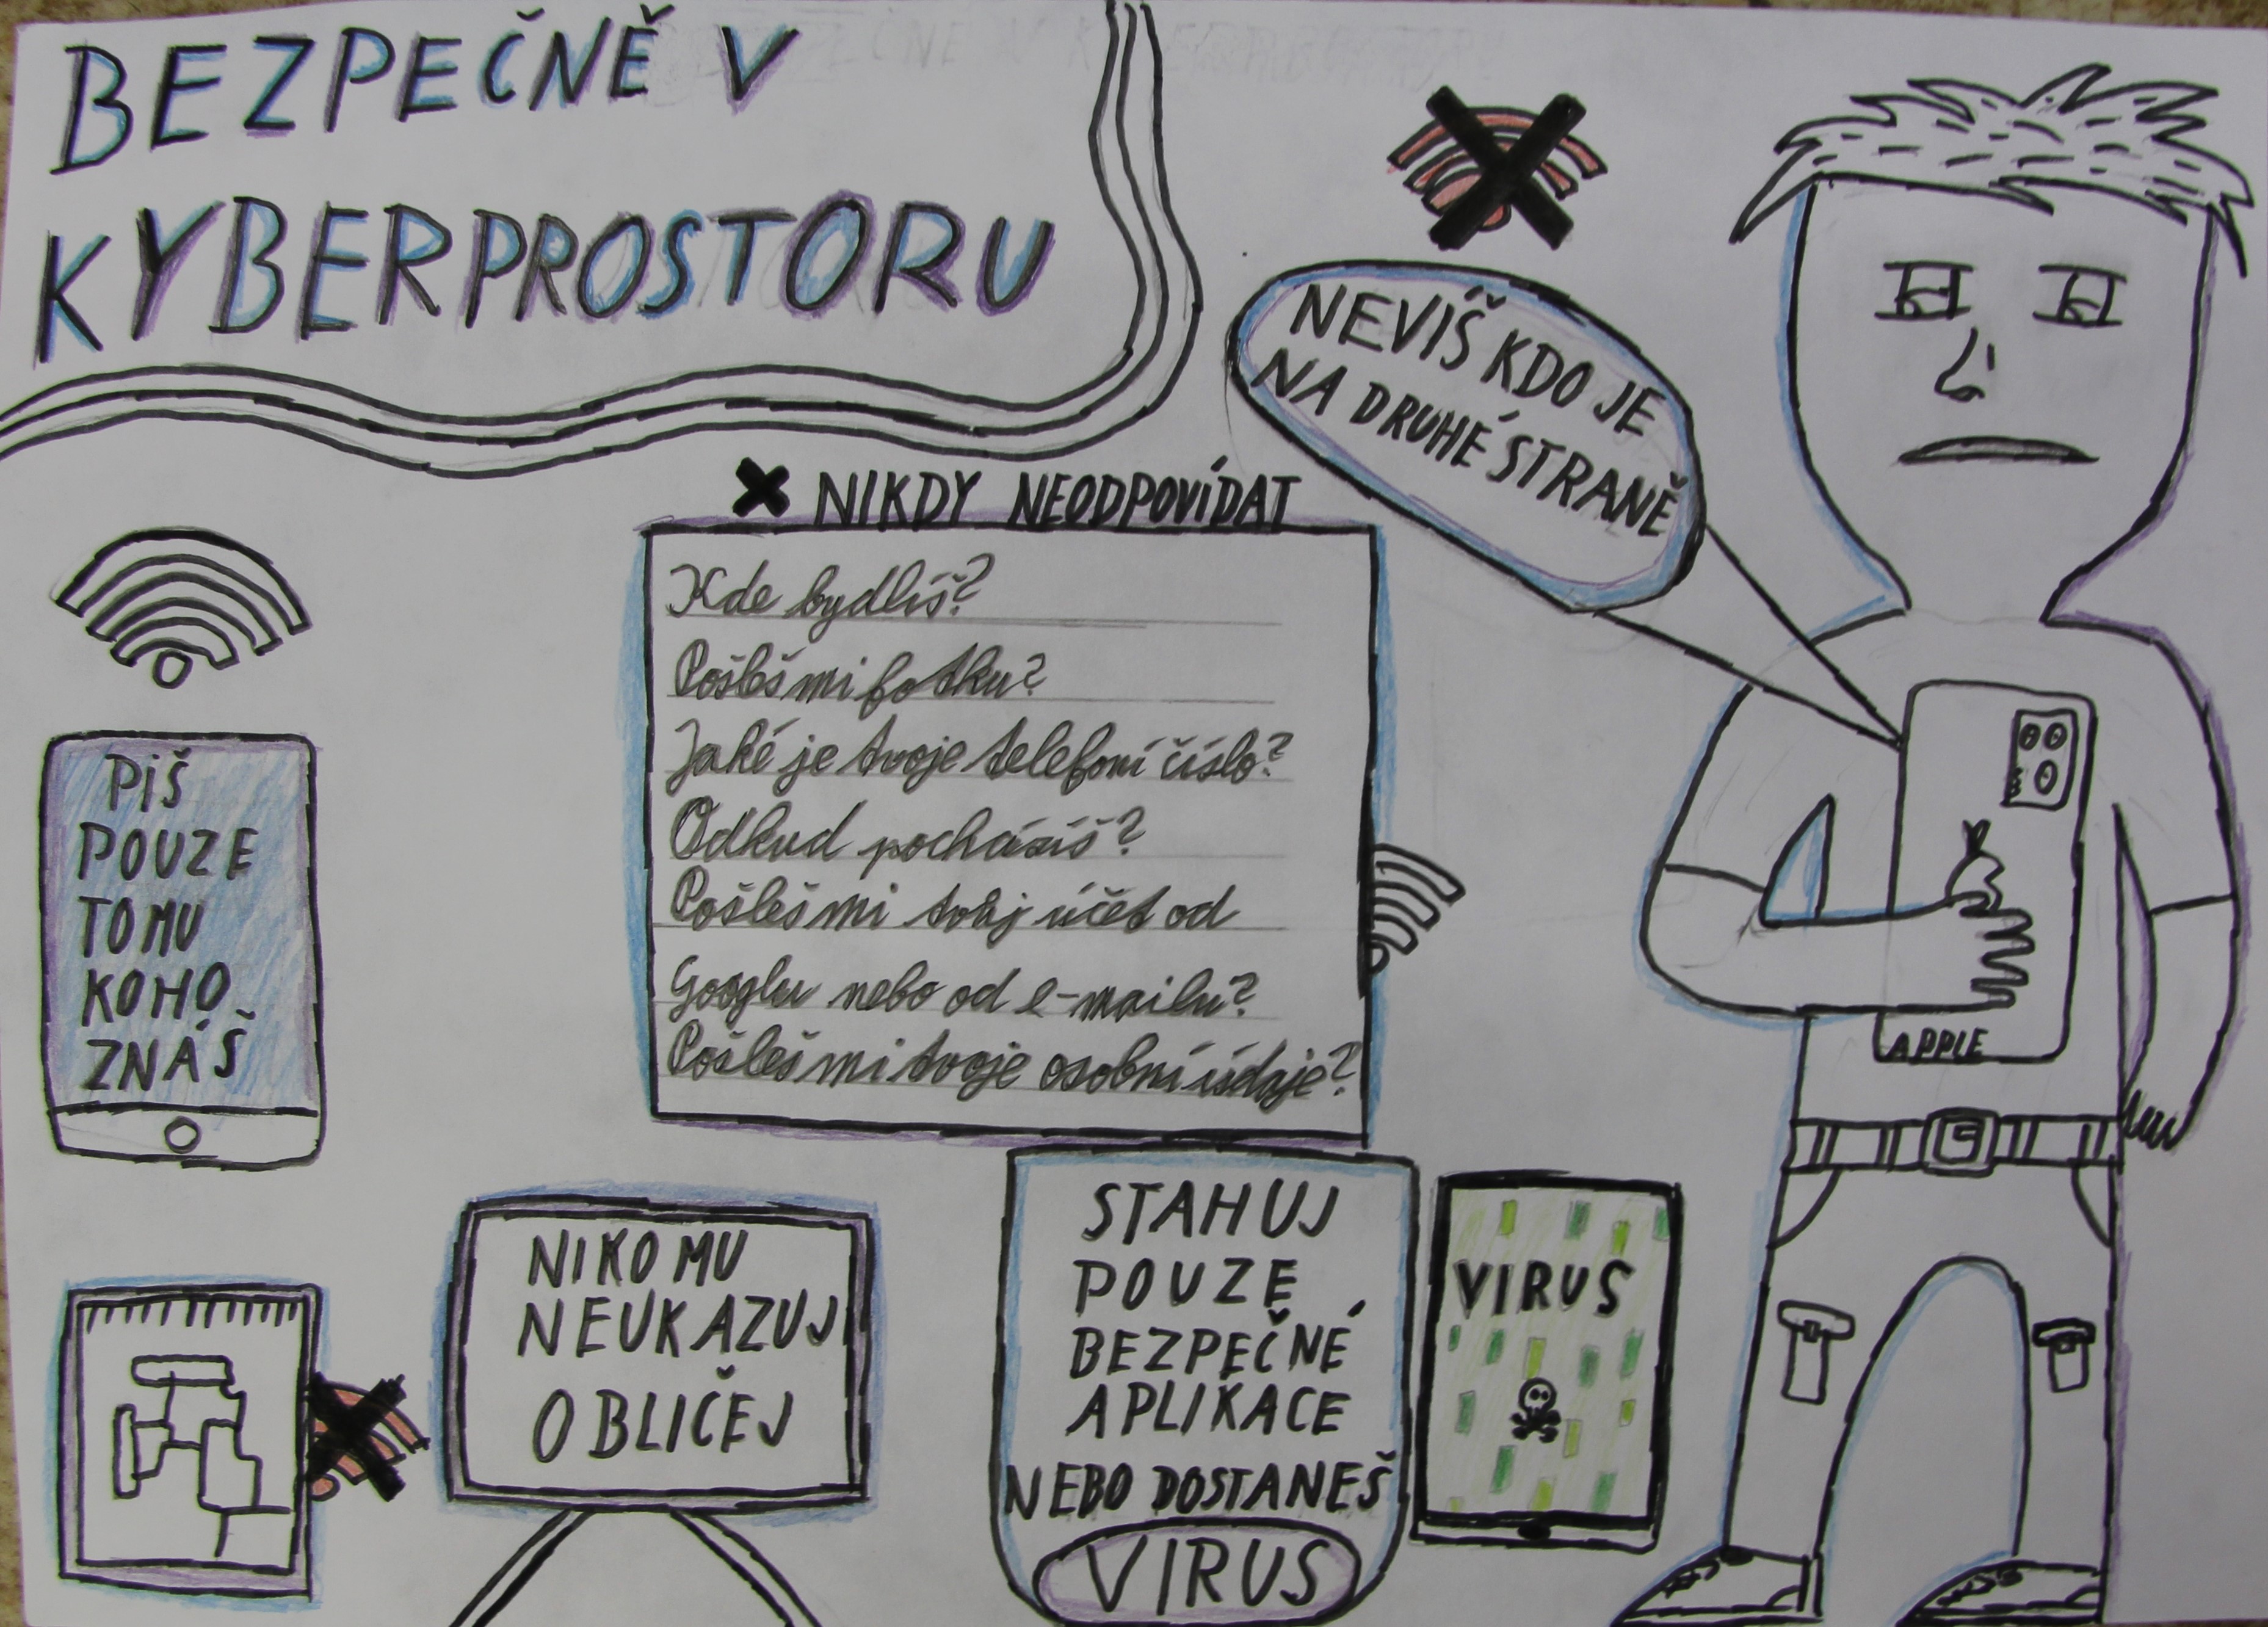 BEZPEČNĚ V
KYBERPROSTORU
NEVÍŠ KDO JE
NA DRUHÉ STRANĚ
✖ NIKDY NEODPOVÍDAT
Kde bydlíš?
Pošleš mi fotku?
Jaké je tvoje telefoní číslo?
Odkud pocházíš?
Pošleš mi tvůj účet od
Googlu nebo od e-mailu?
Pošleš mi tvoje osobní údaje?
PIŠ
POUZE
TOMU
KOHO
ZNÁŠ
APPLE
NIKOMU
NEUKAZUJ
OBLIČEJ
STAHUJ
POUZE
BEZPEČNÉ
APLIKACE
NEBO DOSTANEŠ
VIRUS
VIRUS